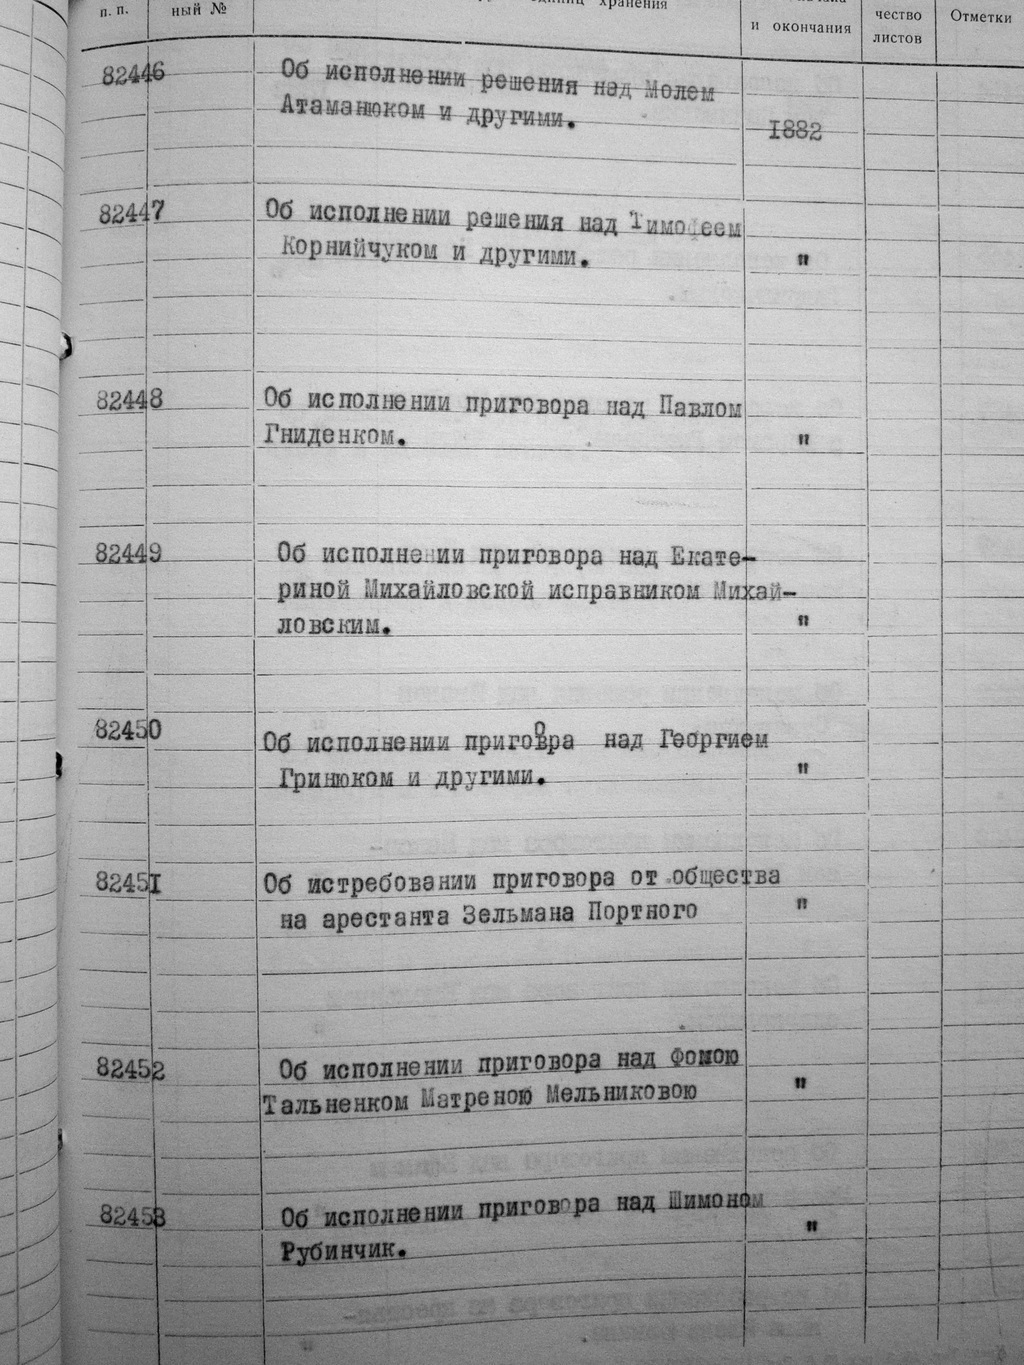 п. п.
ный №
единиц хранения
и окончания
чество
листов
Отметки
82446
Об исполнении решения над Молем
Атаманюком и другими.
1882
82447
Об исполнении решения над Тимофеем
Корнийчуком и другими.
"
82448
Об исполнении приговора над Павлом
Гниденком.
"
82449
Об исполнении приговора над Екате-
риной Михайловской исправником Михай-
ловским.
"
82450
Об исполнении приговра над Георгием
Гринюком и другими.
"
82451
Об истребовании приговора от общества
на арестанта Зельмана Портного
"
82452
Об исполнении приговора над Фомою
Тальненком Матреною Мельниковою
"
82453
Об исполнении приговора над Шимоном
Рубинчик.
"